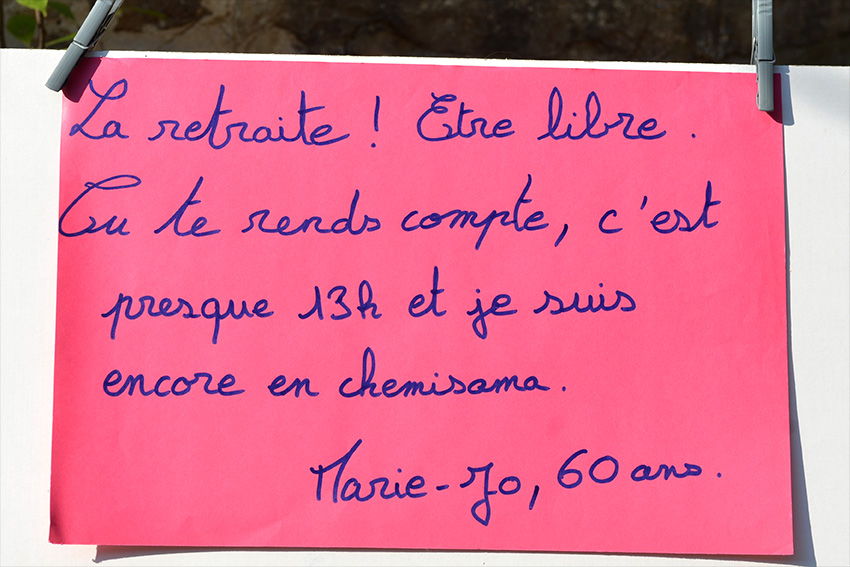 La retraite ! Etre libre.
Tu te rends compte, c'est
presque 13h et je suis
encore en chemisama.
Marie-Jo, 60 ans.